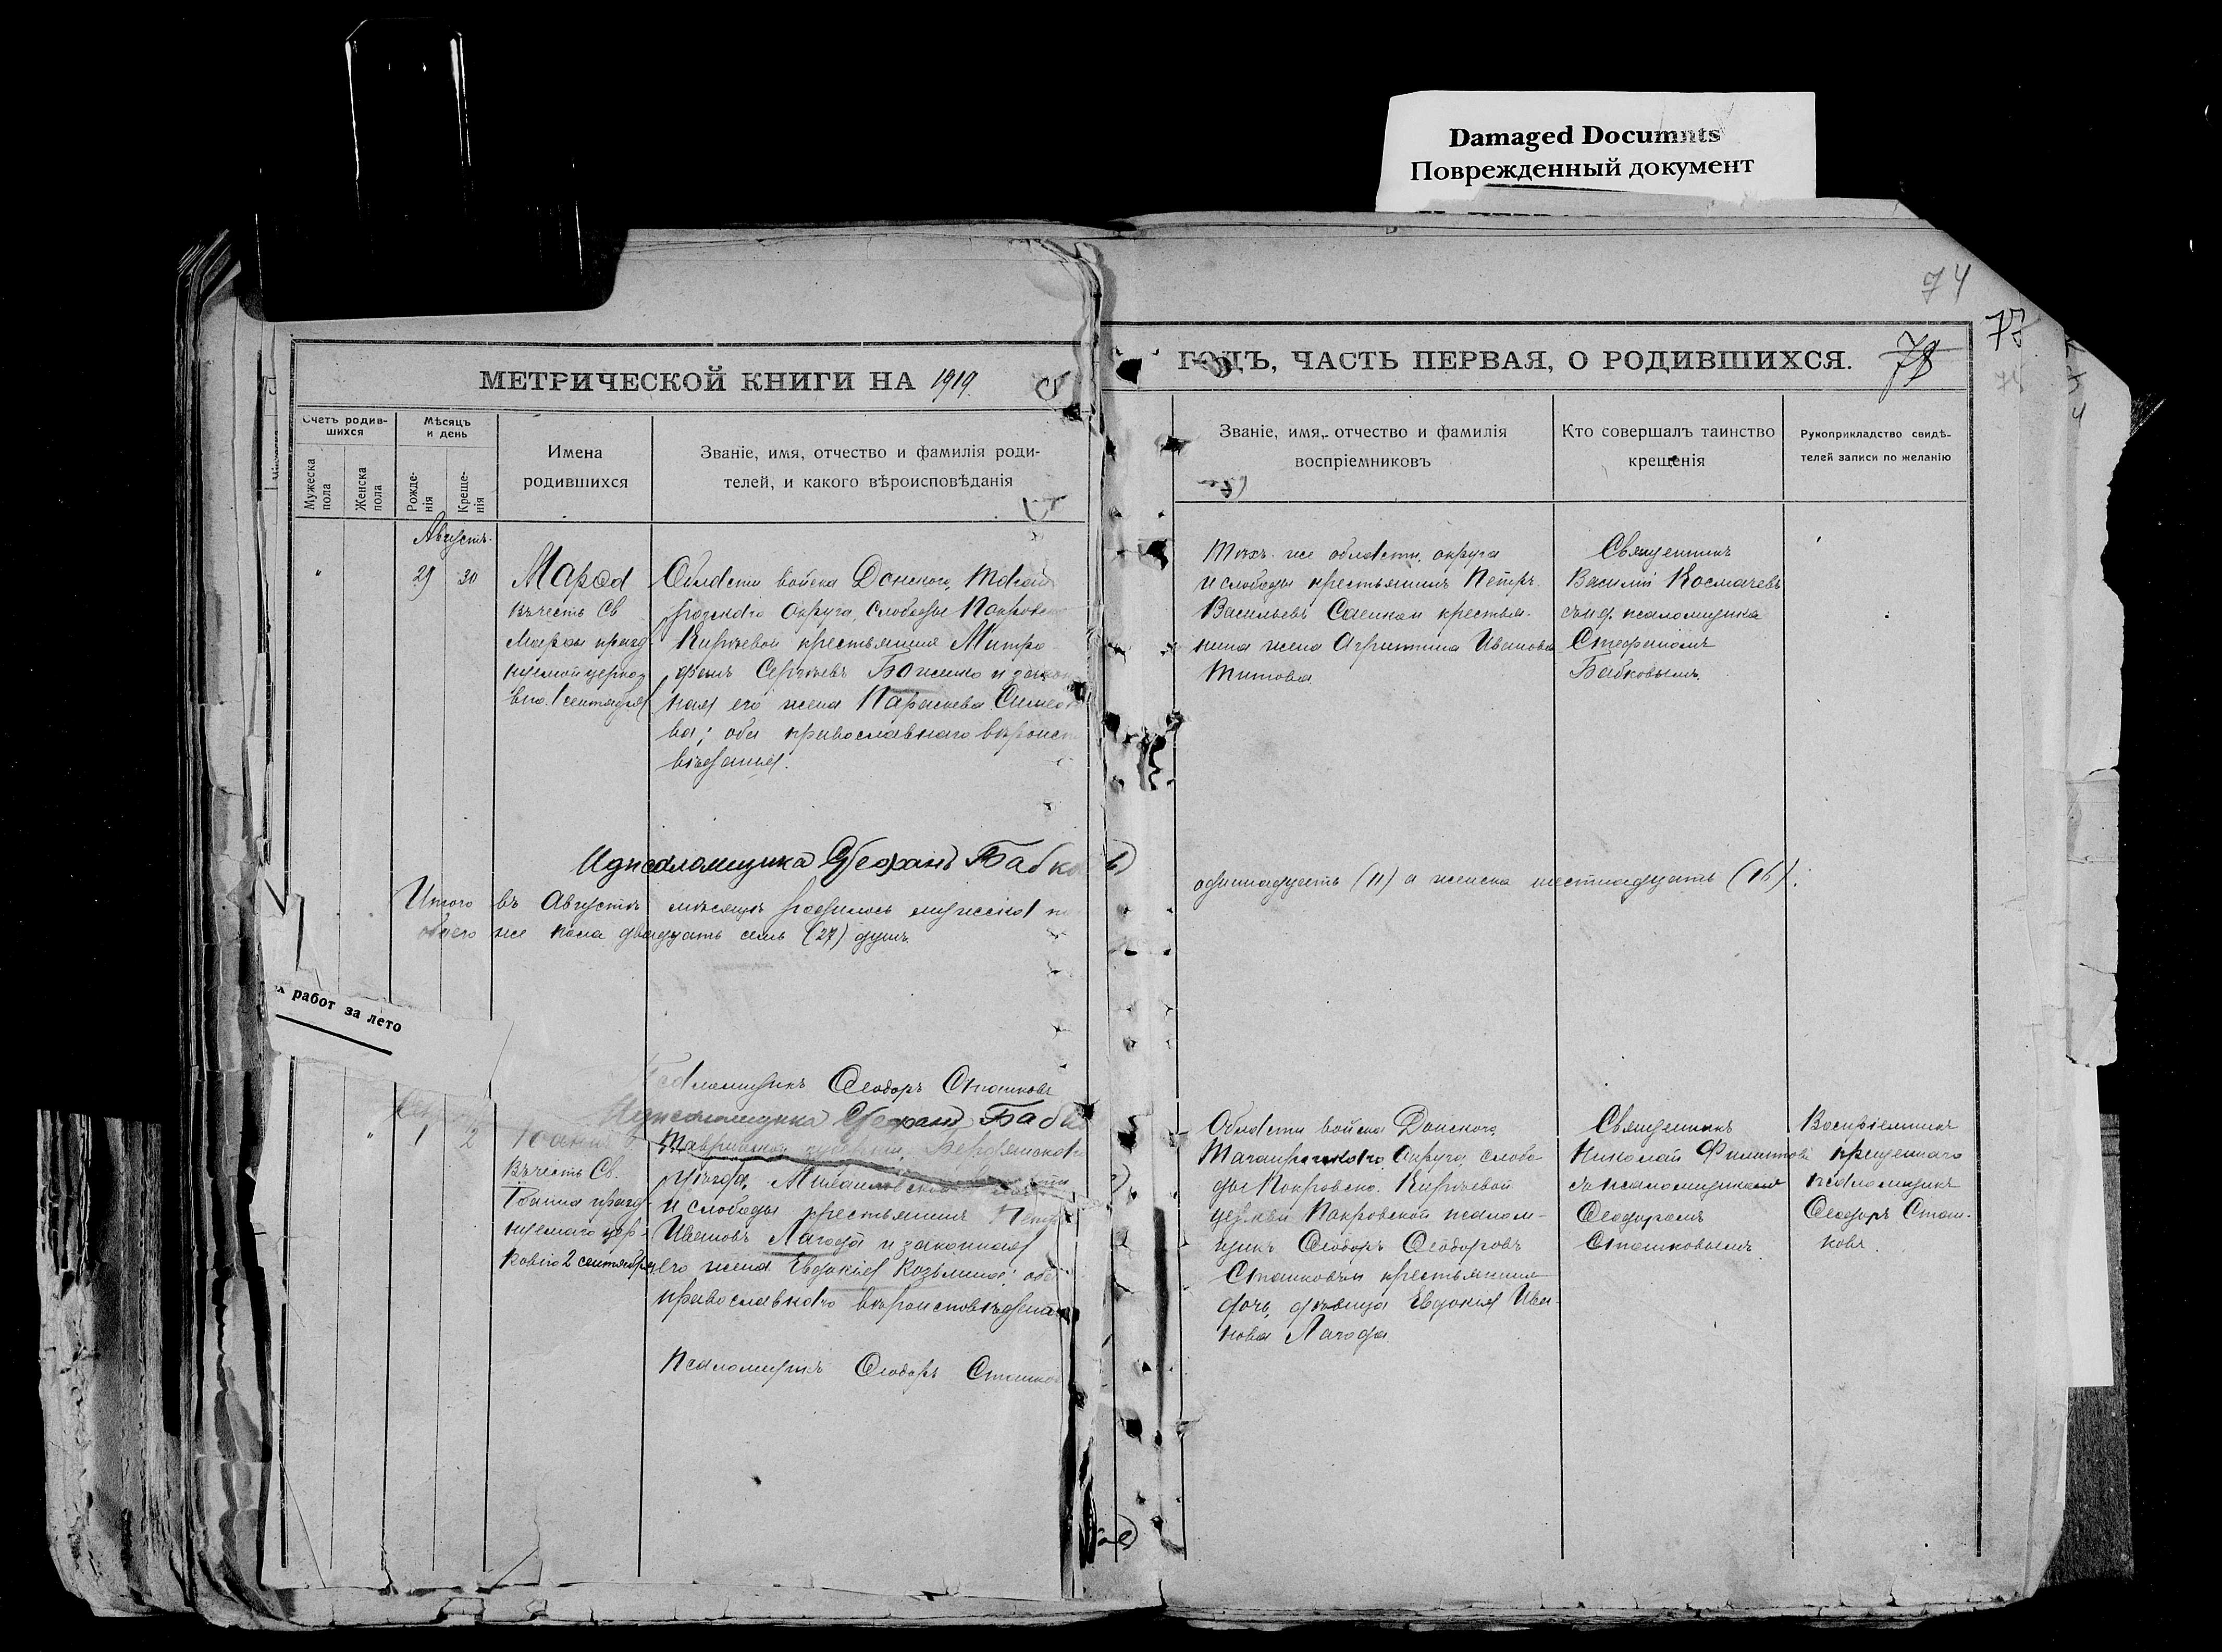 Damaged Documnts
Поврежденный документ
74
77
78
МЕТРИЧЕСКОЙ КНИГИ НА 1919
ГОДЪ, ЧАСТЬ ПЕРВАЯ, О РОДИВШИХСЯ.
Счетъ родив-
шихся
Мужеска
пола
Женска
пола
Мѣсяцъ
и день
Рожде-
нія
Креще-
нія
Имена
родившихся
Званіе, имя, отчество и фамилія роди-
телей, и какого вѣроисповѣданія
Званіе, имя, отчество и фамилія
воспріемниковъ
Кто совершалъ таинство
крещенія
Рукоприкладство свидѣ-
телей записи по желанію
Августъ
29 30
Марѳа
въ честь Св.
Марѳы празд-
нуемой церко-
вію 1 сентября
Области войска Донского,
округа, слободы Покровско
Кирѣевой крестьянинъ Митро
фанъ Сергѣевъ Боженко и закон
ная его жена Параскева Симео
ва; оба православнаго вѣроисп
вѣданія.
Тѣхъ же области, округа
и слободы крестьянинъ Петръ
Васильевъ и крестья-
нина жена Агриппина Иванова
Титова
Священникъ
Василій Космачевъ
съ и.д. псаломщика
Стефаномъ
Бабковымъ.
И.д. псаломщика Стефанъ Бабко
Итого въ Августѣ мѣсяцѣ родилось мужска
обоего же пола двадцать семь (27) душъ.
одиннадцать (11) а женска шестнадцать (16).
х работ за лето
Псаломщикъ Ѳеодоръ Сташковъ
И.д. псаломщика Стефанъ Бабк
1 2
Іоаннъ
Въ честь Св.
Іоанна празд-
нуемаго цер-
ковію 2 сентября
Таврической губерніи, Бердянскаго
уѣзда, Михайловской
и слободы крестьянинъ Петръ
Ивановъ Лагода и законная
его жена Евдокія Козьмина; оба
православнаго вѣроисповѣдані
Псаломщикъ Ѳеодоръ Сташков
Области войска Донского,
Таганрогскаго Округа, слобо
ды Покровско-Кирѣевой
церкви Покровской псалом-
щикъ Ѳеодоръ Ѳеодоровъ
Сташковъ и крестьянина
дочь дѣвица Евдокія Ива-
нова Лагода.
Священникъ
Николай
съ псаломщикомъ
Ѳеодоромъ
Сташковымъ
Воспріемникъ
крещеннаго
псаломщикъ
Ѳеодоръ Сташ-
ковъ.